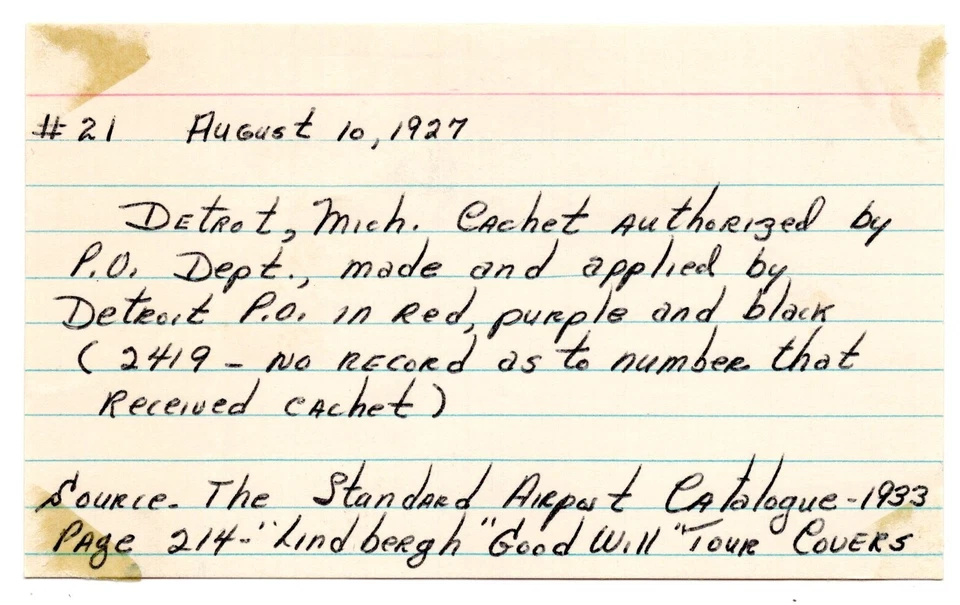 #21 August 10, 1927
Detrot, Mich. Cachet authorized by
P.O. Dept., made and applied by
Detroit P.O. in Red, purple and black
(2419 - No record as to number that
Received cachet)
Source - The Standard Airport Catalogue - 1933
Page 214 - "Lindbergh "Good Will" Tour Covers